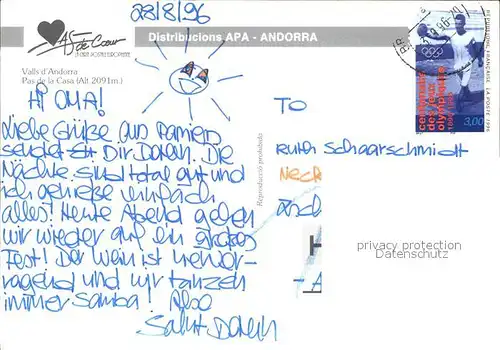 28/8/96
As de Cœur
Distribucions APA - ANDORRA
Valls d'Andorra
Pas de la Casa (Alt 2091m.)
HI OMA!
Liebe Grüße aus Pamiers
sendet Dir Doreen. Die
Nächte sind total gut und
ich genieße einfach
alles! Heute Abend gehen
wir wieder auf ein großes
Fest! Der Wein ist hervor-
ragend und wir tanzen
immer Samba! Also
Salut Doreen
Reproducció prohibida
REPUBLIQUE FRANCAISE LA POSTE 1996
centenaire
des Jeux
olympiques
1896-1996
3,00
TO
Ruth Schaarschmidt
Neck
privacy protection
Datenschutz